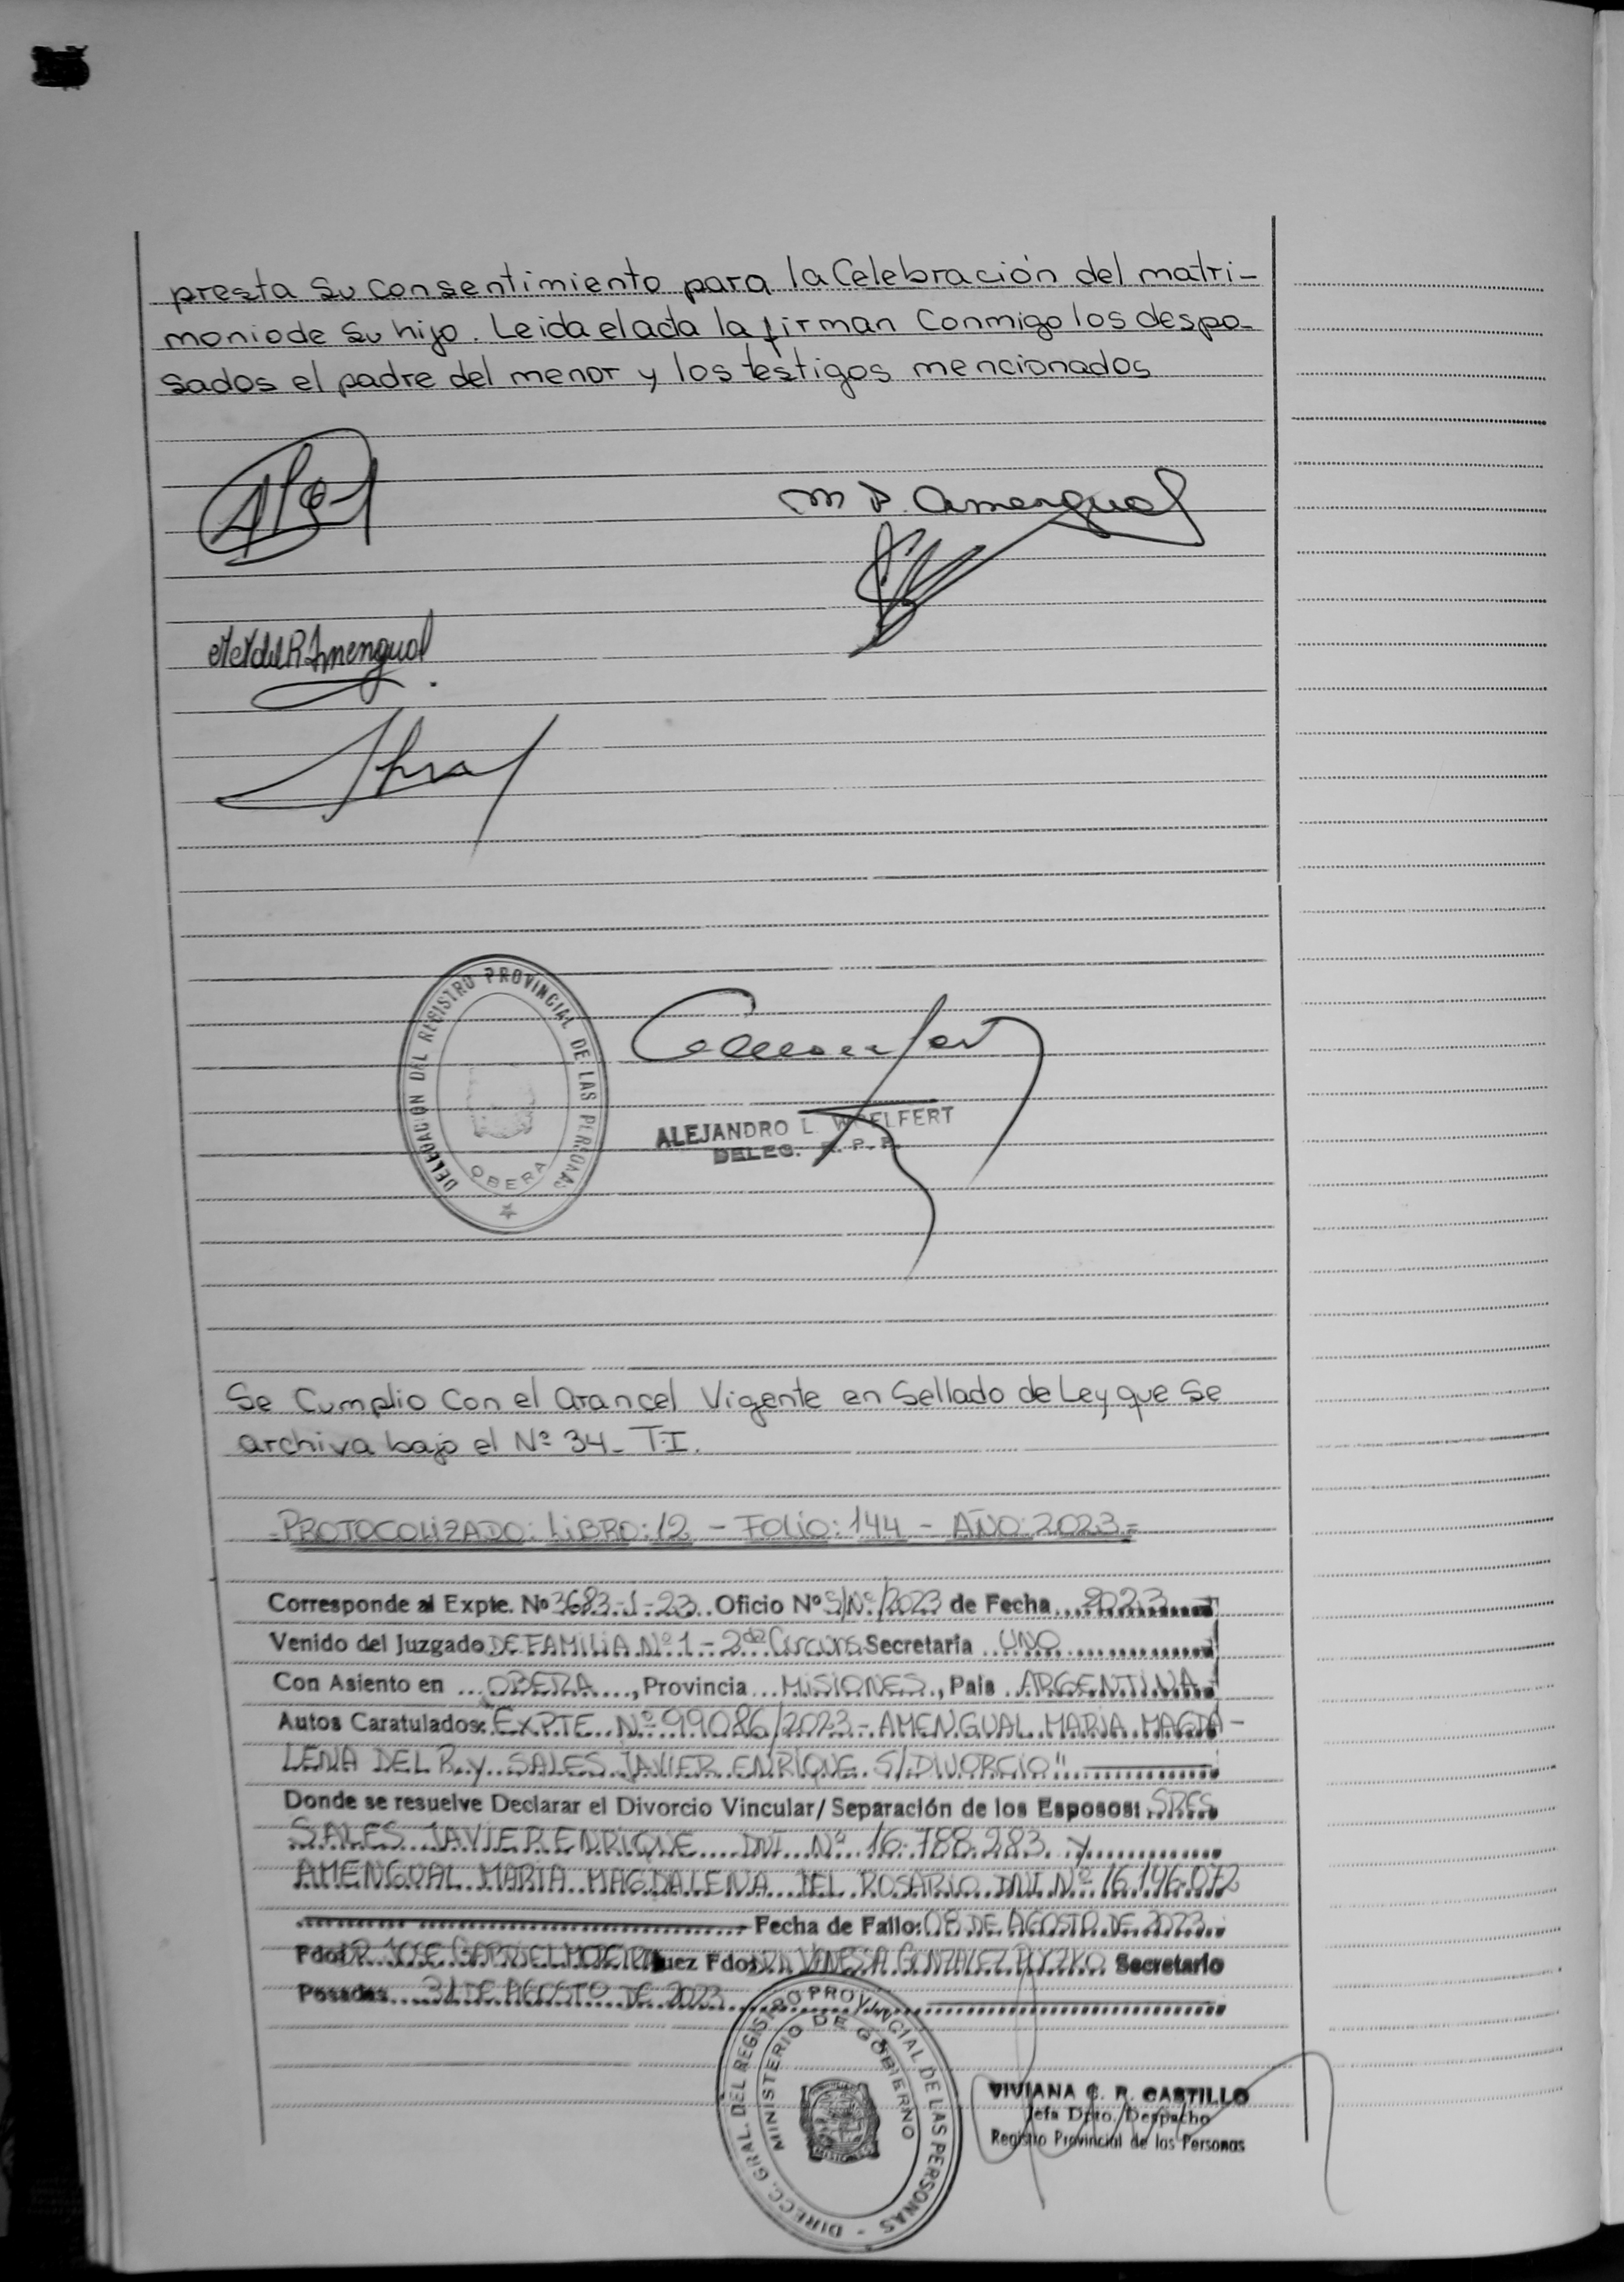 presta su consentimiento para la Celebración del matri-
monio de su hijo. Leida el acta la firman Conmigo los despo-
sados el padre del menor y los testigos mencionados
M P. Amengual
M M del R Amengual
DELEGACION DEL REGISTRO PROVINCIAL DE LAS PERSONAS
OBERA
ALEJANDRO L. WOELFERT
DELEG. R. P. P.
Se Cumplio Con el Arancel Vigente en Sellado de Ley que Se
archiva bajo el Nº 34 - T.I.
- PROTOCOLIZADO: LIBRO: 12 - FOLIO: 144 - AÑO: 2023 -
Corresponde al Expte. Nº 3683-1-23 Oficio Nº S/Nº/2023 de Fecha 2023
Venido del Juzgado DE FAMILIA Nº 1 - 2da Circuns. Secretaría UNO
Con Asiento en OBERA, Provincia MISIONES, País ARGENTINA
Autos Caratulados: EXPTE Nº 99086/2023 - AMENGUAL MARIA MAGDA-
LENA DEL R. y SALES JAVIER ENRIQUE S/ DIVORCIO"
Donde se resuelve Declarar el Divorcio Vincular/Separación de los Esposos: SRES
SALES JAVIER ENRIQUE DNI Nº 16.788.283 y
AMENGUAL MARIA MAGDALENA DEL ROSARIO DNI Nº 16.196.072
Fecha de Fallo: 08 DE AGOSTO DE 2023
Fdo: DR JOSE GABRIEL Juez Fdo: DRA VANESSA GONZALEZ Secretario
Posadas 31 DE AGOSTO DE 2023
DIRECC. GRAL. DEL REGISTRO PROVINCIAL DE LAS PERSONAS
MINISTERIO DE GOBIERNO
MISIONES
VIVIANA C. R. CASTILLO
Jefa Dpto. Despacho
Registro Provincial de las Personas